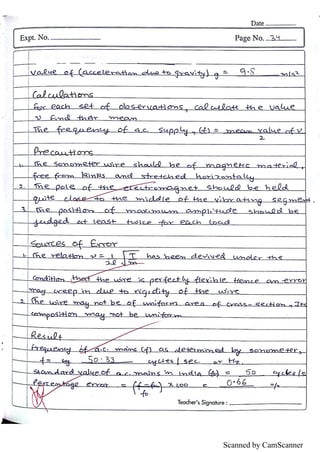 Date
Expt. No.
Page No. 34
value of (acceleration due to gravity) g = 9.8 m/s2
Calculations
For each set of observations, calculate the value
ν find their mean
The frequency of a.c. supply, (f) = mean value of ν / 2
Precautions
1. The sonometer wire should be of magnetic material,
free from kinks and stretched horizontally
2. The pole of the electromagnet should be held
quite close to the middle of the vibrating segment.
3. The position of maximum amplitude should be
judged at least twice for each load
Sources of Error
1. The relation ν = 1/2l √T/m has been derived under the
condition that the wire is perfectly flexible Hence an error
may creep in due to rigidity of the wire
2. The wire may not be of uniform area of cross-section, Its
composition may not be uniform
Result
Frequency of a.c. mains (f) as determined by sonometer,
f = 50.33 cycles / sec or Hz
Standard value of a.c. mains in India (f0) = 50 cycles/s
Percentage error = (f-f0)/f0 x 100 = 0.66 %
Teacher's Signature :
Scanned by CamScanner